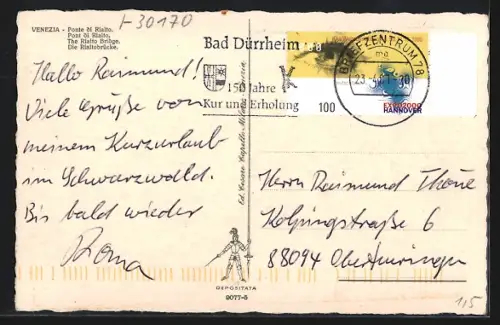 I-30170
VENEZIA - Ponte di Rialto.
Pont di Rialto.
The Rialto Bridge.
Die Rialtobrücke.
Bad Dürrheim
150 Jahre
Kur und Erholung
BRIEFZENTRUM 78
100
EXPO2000
HANNOVER
Hallo Raimund!
Viele Grüße von
meinem Kurzurlaub
im Schwarzwald.
Bis bald wieder
Herrn Raimund Thoue
Kolpingstraße 6
88094 Oberteuringen
Ed. Cesare Capello - Milano
DEPOSITATA
9077-5
115